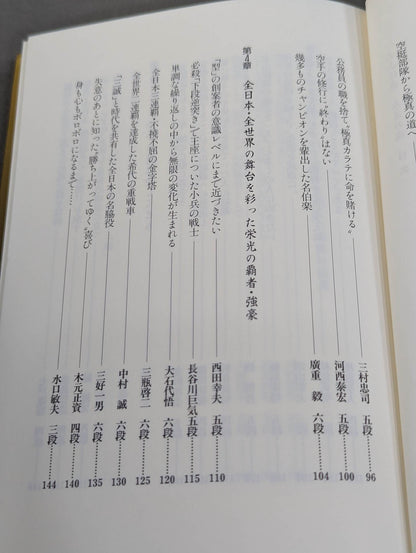 空挺部隊から極真の道へ
公務員の職を捨て〝極真カラテに命を賭ける〟────三村忠司 五段……96
空手の修行に〝終わり〟はない────河西泰宏 五段……100
幾多ものチャンピオンを輩出した名伯楽────廣重 毅 六段……104
第4章 全日本・全世界の舞台を彩った栄光の覇者・強豪
「型」の創案者の意識レベルにまで近づきたい────西田幸夫 五段……110
必殺「下段逆突き」で王座についた小兵の戦士────長谷川巨気 五段……115
単調な繰り返しの中から無限の変化が生まれる────大石代悟 六段……120
全日本三連覇・不撓不屈の金字塔────三瓶啓二 六段……125
全世界二連覇を達成した希代の重戦車────中村 誠 六段……130
「三誠」と時代を共有した全日本の名脇役────三好一男 六段……135
失意のあとに知った〝勝ち上がってゆく〟喜び────木元正資 四段……140
身も心もボロボロになるまで……────水口敏夫 三段……144